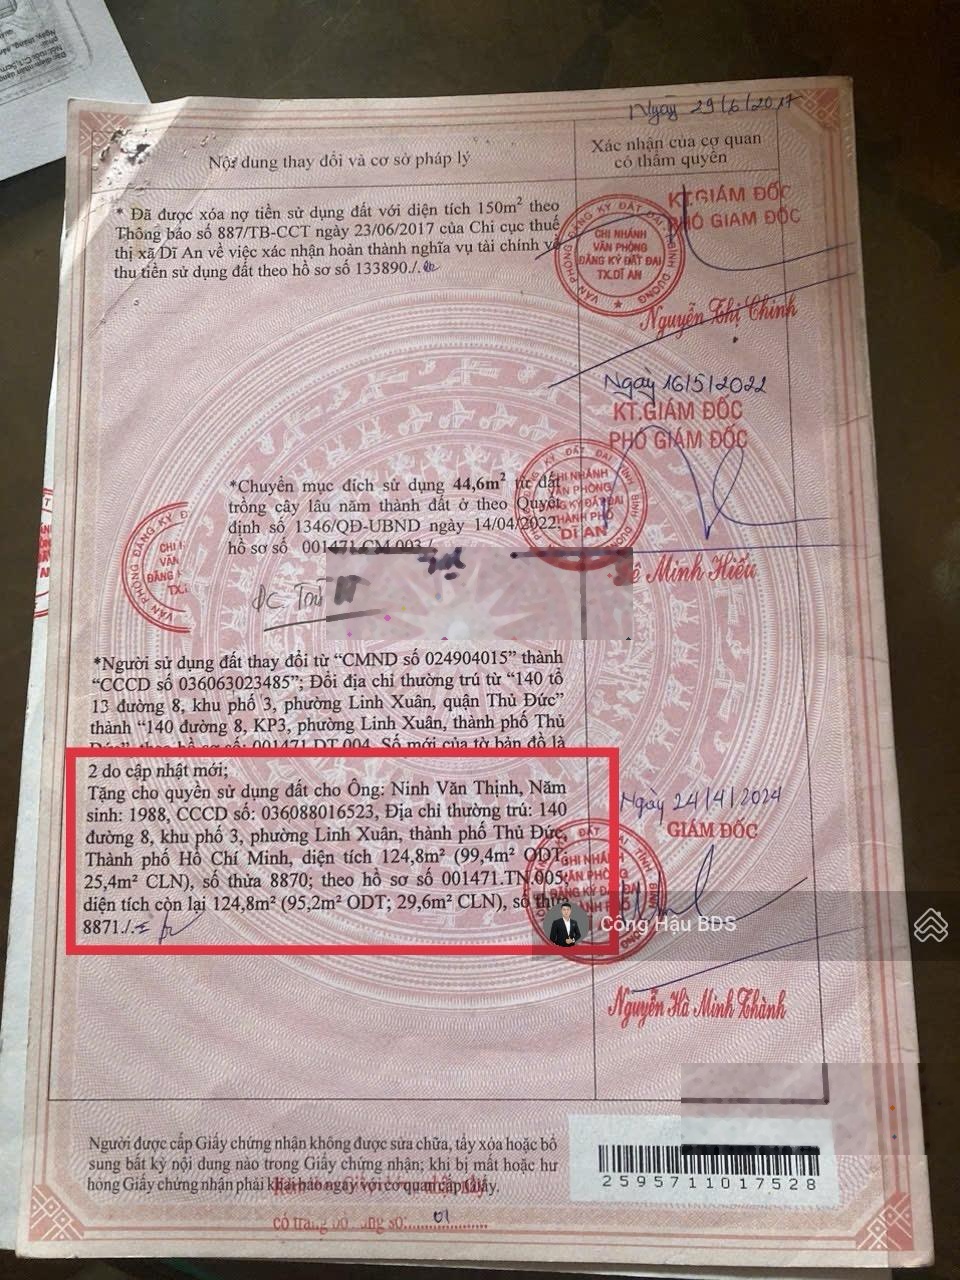 Ngày 29/6/2017
Nội dung thay đổi và cơ sở pháp lý
Xác nhận của cơ quan
có thẩm quyền
* Đã được xóa nợ tiền sử dụng đất với diện tích 150m² theo
Thông báo số 887/TB-CCT ngày 23/06/2017 của Chi cục thuế
thị xã Dĩ An về việc xác nhận hoàn thành nghĩa vụ tài chính về
thu tiền sử dụng đất theo hồ sơ số 133890./.
KT.GIÁM ĐỐC
PHÓ GIÁM ĐỐC
VĂN PHÒNG ĐĂNG KÝ ĐẤT ĐAI BÌNH DƯƠNG
CHI NHÁNH
VĂN PHÒNG
ĐĂNG KÝ ĐẤT ĐAI
TX.DĨ AN
Nguyễn Thị Chinh
Ngày 16/5/2022
KT.GIÁM ĐỐC
PHÓ GIÁM ĐỐC
*Chuyển mục đích sử dụng 44,6m² từ đất
trồng cây lâu năm thành đất ở theo Quyết
định số 1346/QĐ-UBND ngày 14/04/2022,
hồ sơ số 001471.CM.003./.
CHI NHÁNH
VĂN PHÒNG
ĐĂNG KÝ ĐẤT ĐAI
THÀNH PHỐ
DĨ AN
Lê Minh Hiếu
*Người sử dụng đất thay đổi từ “CMND số 024904015” thành
“CCCD số 036063023485”; Đổi địa chỉ thường trú từ “140 tổ
13 đường 8, khu phố 3, phường Linh Xuân, quận Thủ Đức”
thành “140 đường 8, KP3, phường Linh Xuân, thành phố Thủ
Đức” theo hồ sơ số: 001471.DT.004. Số mới của tờ bản đồ là
2 do cập nhật mới;
Tặng cho quyền sử dụng đất cho Ông: Ninh Văn Thịnh, Năm
sinh: 1988, CCCD số: 036088016523, Địa chỉ thường trú: 140
đường 8, khu phố 3, phường Linh Xuân, thành phố Thủ Đức,
Thành phố Hồ Chí Minh, diện tích 124,8m² (99,4m² ODT;
25,4m² CLN), số thửa 8870; theo hồ sơ số 001471.TN.005;
diện tích còn lại 124,8m² (95,2m² ODT; 29,6m² CLN), số thửa
8871./.
Ngày 24/4/2024
GIÁM ĐỐC
Công Hậu BDS
Nguyễn Hà Minh Thành
Người được cấp Giấy chứng nhận không được sửa chữa, tẩy xóa hoặc bổ
sung bất kỳ nội dung nào trong Giấy chứng nhận; khi bị mất hoặc hư
hỏng Giấy chứng nhận phải khai báo ngay với cơ quan cấp Giấy.
2595711017528
có trang bổ sung số: 01